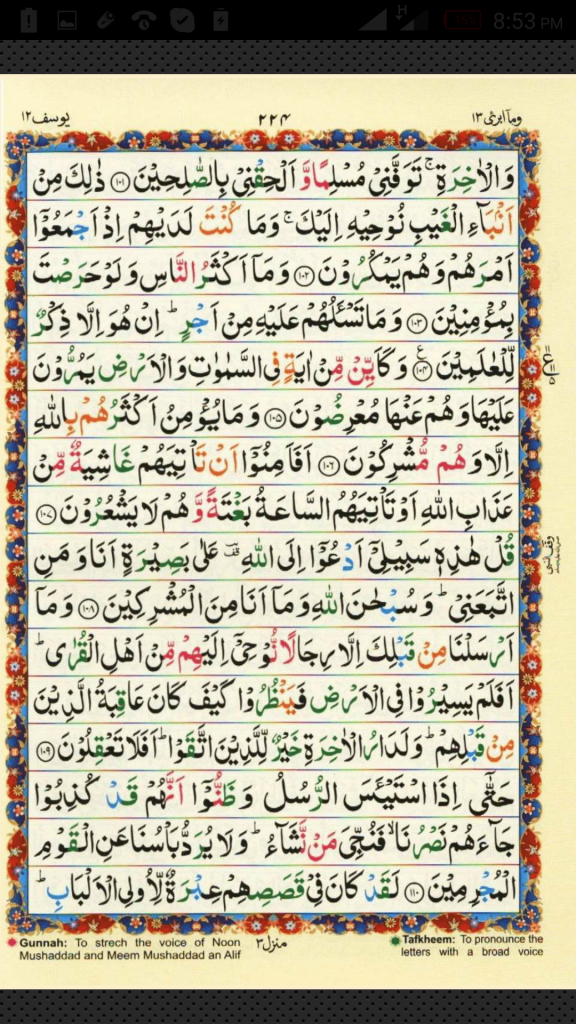 15% 8:53 PM
وما ابرئ ١٣
٢٢٤
يوسف ١٢
وَالْاٰخِرَةِ ۚ تَوَفَّنِيْ مُسْلِمًا وَّ اَلْحِقْنِيْ بِالصّٰلِحِيْنَ ﴿۱۰۱﴾ ذٰلِكَ مِنْ
اَنْۢبَآءِ الْغَيْبِ نُوْحِيْهِ اِلَيْكَ ۚ وَمَا كُنْتَ لَدَيْهِمْ اِذْ اَجْمَعُوْٓا
اَمْرَهُمْ وَهُمْ يَمْكُرُوْنَ ﴿۱۰۲﴾ وَمَآ اَكْثَرُ النَّاسِ وَلَوْ حَرَصْتَ
بِمُؤْمِنِيْنَ ﴿۱۰۳﴾ وَمَا تَسْـَٔلُهُمْ عَلَيْهِ مِنْ اَجْرٍ ؕ اِنْ هُوَ اِلَّا ذِكْرٌ
لِّلْعٰلَمِيْنَ ﴿۱۰۴﴾ وَكَاَيِّنْ مِّنْ اٰيَةٍ فِي السَّمٰوٰتِ وَالْاَرْضِ يَمُرُّوْنَ
عَلَيْهَا وَهُمْ عَنْهَا مُعْرِضُوْنَ ﴿۱۰۵﴾ وَمَا يُؤْمِنُ اَكْثَرُهُمْ بِاللّٰهِ
اِلَّا وَهُمْ مُّشْرِكُوْنَ ﴿۱۰۶﴾ اَفَاَمِنُوْٓا اَنْ تَاْتِيَهُمْ غَاشِيَةٌ مِّنْ
عَذَابِ اللّٰهِ اَوْ تَاْتِيَهُمُ السَّاعَةُ بَغْتَةً وَّ هُمْ لَا يَشْعُرُوْنَ ﴿۱۰۷﴾
قُلْ هٰذِهٖ سَبِيْلِيْٓ اَدْعُوْٓا اِلَى اللّٰهِ ؔ عَلٰى بَصِيْرَةٍ اَنَا وَ مَنِ
اتَّبَعَنِيْ ؕ وَ سُبْحٰنَ اللّٰهِ وَمَآ اَنَا مِنَ الْمُشْرِكِيْنَ ﴿۱۰۸﴾ وَ مَآ
اَرْسَلْنَا مِنْ قَبْلِكَ اِلَّا رِجَالًا نُّوْحِيْٓ اِلَيْهِمْ مِّنْ اَهْلِ الْقُرٰى ؕ
اَفَلَمْ يَسِيْرُوْا فِي الْاَرْضِ فَيَنْظُرُوْا كَيْفَ كَانَ عَاقِبَةُ الَّذِيْنَ
مِنْ قَبْلِهِمْ ؕ وَلَدَارُ الْاٰخِرَةِ خَيْرٌ لِّلَّذِيْنَ اتَّقَوْا ؕ اَفَلَا تَعْقِلُوْنَ ﴿۱۰۹﴾
حَتّٰٓى اِذَا اسْتَيْـَٔسَ الرُّسُلُ وَ ظَنُّوْٓا اَنَّهُمْ قَدْ كُذِبُوْا
جَآءَهُمْ نَصْرُنَا ۙ فَنُجِّيَ مَنْ نَّشَآءُ ؕ وَلَا يُرَدُّ بَاْسُنَا عَنِ الْقَوْمِ
الْمُجْرِمِيْنَ ﴿۱۱۰﴾ لَقَدْ كَانَ فِيْ قَصَصِهِمْ عِبْرَةٌ لِّاُولِي الْاَلْبَابِ ؕ
Gunnah: To strech the voice of Noon
Mushaddad and Meem Mushaddad an Alif
منزل ٣
Tafkheem: To pronounce the
letters with a broad voice